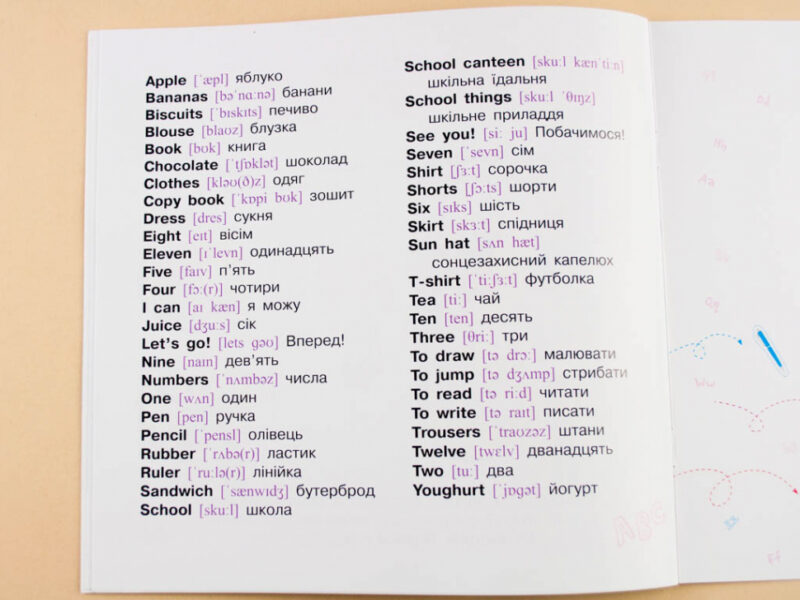 Apple [ˈæpl] яблуко
Bananas [bəˈnɑːnə] банани
Biscuits [ˈbɪskɪts] печиво
Blouse [blaʊz] блузка
Book [bʊk] книга
Chocolate [ˈtʃɒklət] шоколад
Clothes [kləʊ(ð)z] одяг
Copy book [ˈkɒpi bʊk] зошит
Dress [dres] сукня
Eight [eɪt] вісім
Eleven [ɪˈlevn] одинадцять
Five [faɪv] п'ять
Four [fɔː(r)] чотири
I can [aɪ kæn] я можу
Juice [dʒuːs] сік
Let's go! [lets gəʊ] Вперед!
Nine [naɪn] дев'ять
Numbers [ˈnʌmbəz] числа
One [wʌn] один
Pen [pen] ручка
Pencil [ˈpensl] олівець
Rubber [ˈrʌbə(r)] ластик
Ruler [ˈruːlə(r)] лінійка
Sandwich [ˈsænwɪdʒ] бутерброд
School [skuːl] школа
School canteen [skuːl kænˈtiːn]
шкільна їдальня
School things [skuːl ˈθɪŋz]
шкільне приладдя
See you! [siː ju] Побачимося!
Seven [ˈsevn] сім
Shirt [ʃɜːt] сорочка
Shorts [ʃɔːts] шорти
Six [sɪks] шість
Skirt [skɜːt] спідниця
Sun hat [sʌn hæt]
сонцезахисний капелюх
T-shirt [ˈtiːʃɜːt] футболка
Tea [tiː] чай
Ten [ten] десять
Three [θriː] три
To draw [tə drɔː] малювати
To jump [tə dʒʌmp] стрибати
To read [tə riːd] читати
To write [tə raɪt] писати
Trousers [ˈtraʊzəz] штани
Twelve [twelv] дванадцять
Two [tuː] два
Youghurt [ˈjɒgət] йогурт